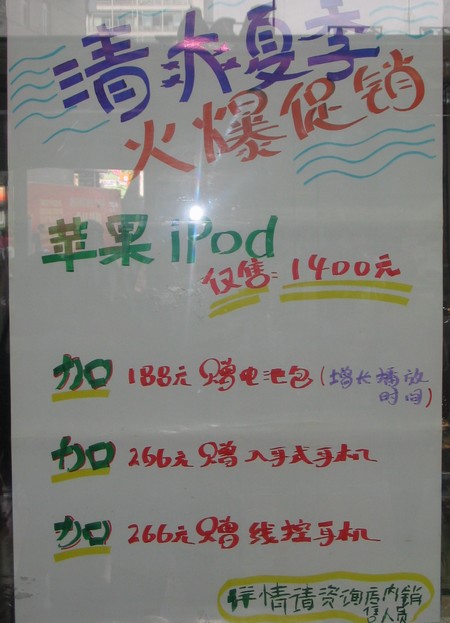 清水夏季
火爆促销
苹果 iPod
仅售：1400元
加 188元 赠电池包（增长播放时间）
加 266元 赠 入耳式耳机
加 266元 赠 线控耳机
详情请资询店内销售人员